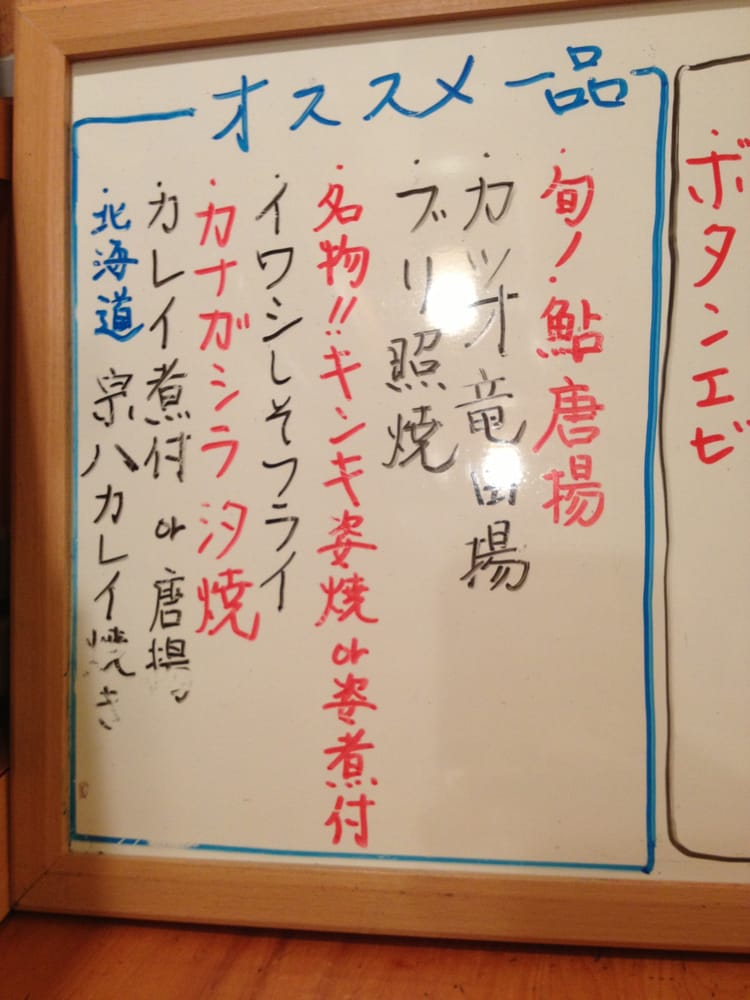 オススメ一品
・旬ノ・鮎唐揚
・カツオ竜田揚
・ブリ照焼
・名物!!キンキ姿焼or姿煮付
・イワシしそフライ
・カナガシラ汐焼
・カレイ煮付or唐揚
・北海道 宗ハカレイ焼き
・ボタンエビ